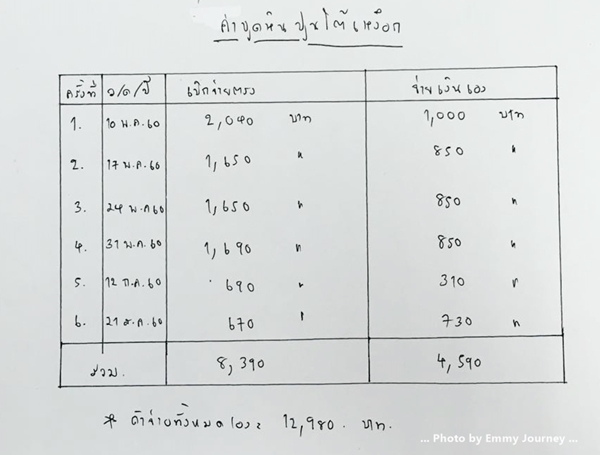 ค่าขูดหินปูนใต้เหงือก
ครั้งที่ ว/ด/ปี เบิกจ่ายตรง จ่ายเงินเอง
1. 10 พ.ค.60 2,040 บาท 1,000 บาท
2. 17 พ.ค.60 1,650 " 850 "
3. 24 พ.ค.60 1,650 " 850 "
4. 31 พ.ค.60 1,690 " 850 "
5. 12 ก.ค.60 690 " 310 "
6. 21 ส.ค.60 670 " 730 "
รวม. 8,390 4,590
* ค่าจ่ายทั้งหมด 12,980. บาท.
... Photo by Emmy Journey ...